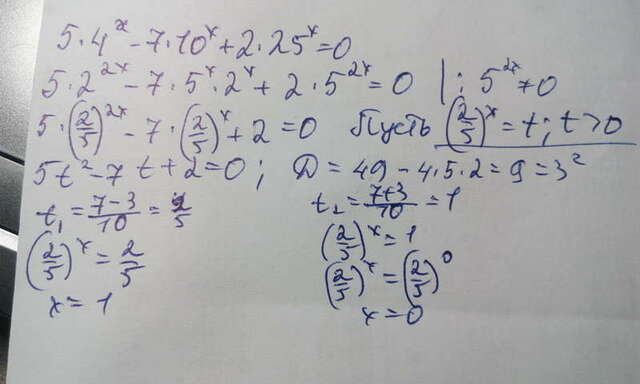 5·4ˣ − 7·10ˣ + 2·25ˣ = 0
5·2²ˣ − 7·5ˣ·2ˣ + 2·5²ˣ = 0 | : 5²ˣ ≠ 0
5·(2/5)²ˣ − 7·(2/5)ˣ + 2 = 0 Пусть (2/5)ˣ = t; t > 0
5t² − 7t + 2 = 0; D = 49 − 4·5·2 = 9 = 3²
t₁ = (7−3)/10 = 2/5 t₂ = (7+3)/10 = 1
(2/5)ˣ = 2/5 (2/5)ˣ = 1
x = 1 (2/5)ˣ = (2/5)⁰
x = 0